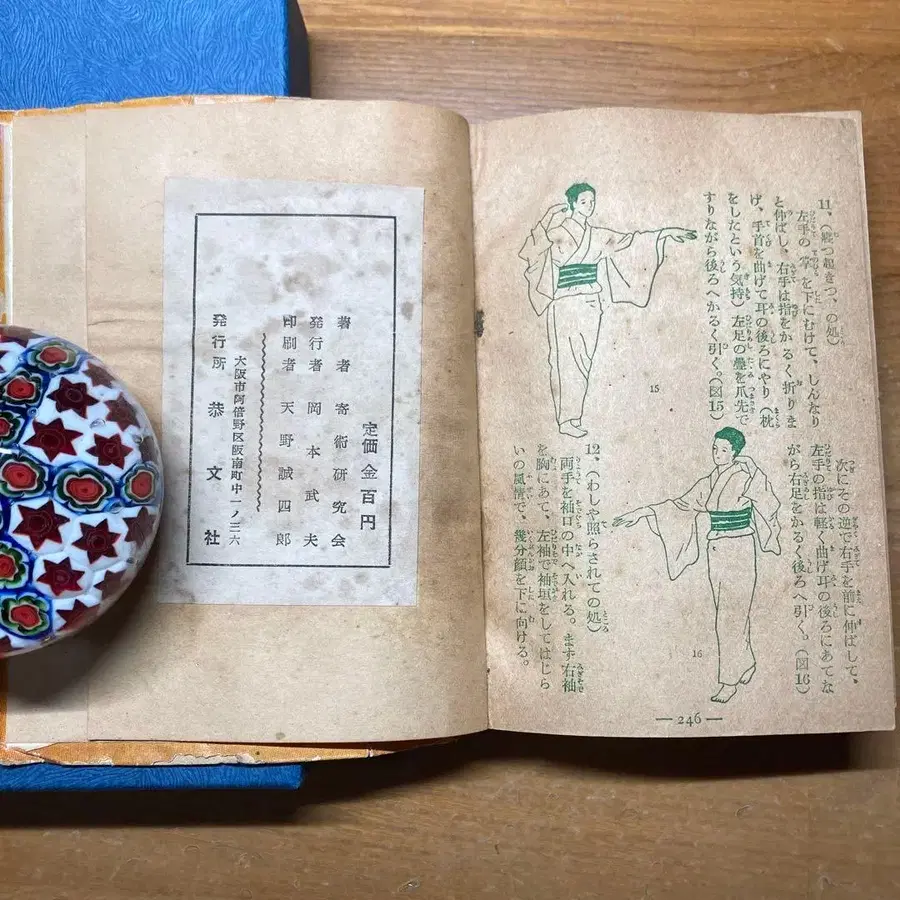 11、寝つ起きつ、の処)
左手の掌を下にむけて、しんなり
と伸ばし、右手は指をかるく折りま
げ、手首を曲げて耳の後ろにやり(枕
をしたという気持)左足の畳を爪先で
すりながら後ろへかるく引く。(図15)
15
次にその逆で右手を前に伸ばして、
左手の指は軽く曲げ耳の後ろにあてな
がら右足をかるく後ろへ引く。(図16)
16
12、(わしや照らされての処)
両手を袖口の中へ入れる。まず右袖
を胸にあて、左袖で袖垣をしてはじら
いの風情で、幾分顔を下に向ける。
— 246 —
定価金百円
著者 寄術研究会
発行者 岡本武夫
印刷者 天野誠四郎
大阪市阿倍野区阪南町中一ノ三六
発行所 恭文社